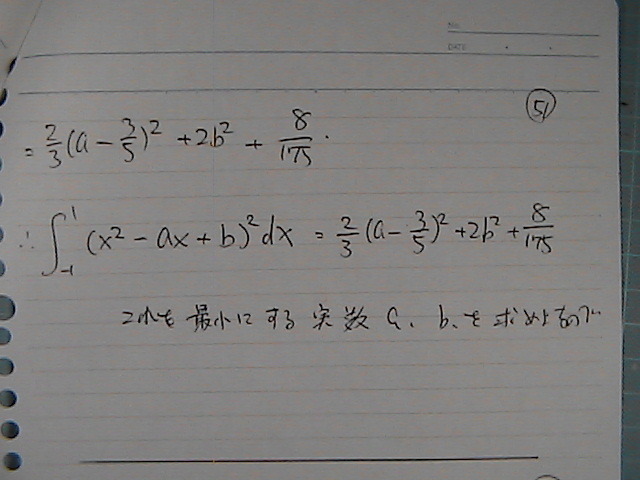 No.
DATE
51
= 2/3 (a - 3/5)² + 2b² + 8/175 .
∴ ∫₋₁¹ (x² - ax + b)² dx = 2/3 (a - 3/5)² + 2b² + 8/175
これを最小にする実数 a、b、を求めるので